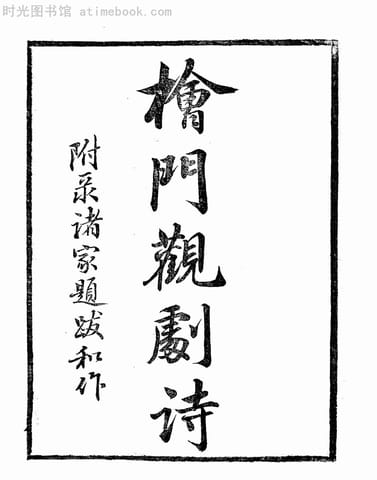 时光图书馆 atimebook.com
檜門觀劇诗
附录诸家题跋和作